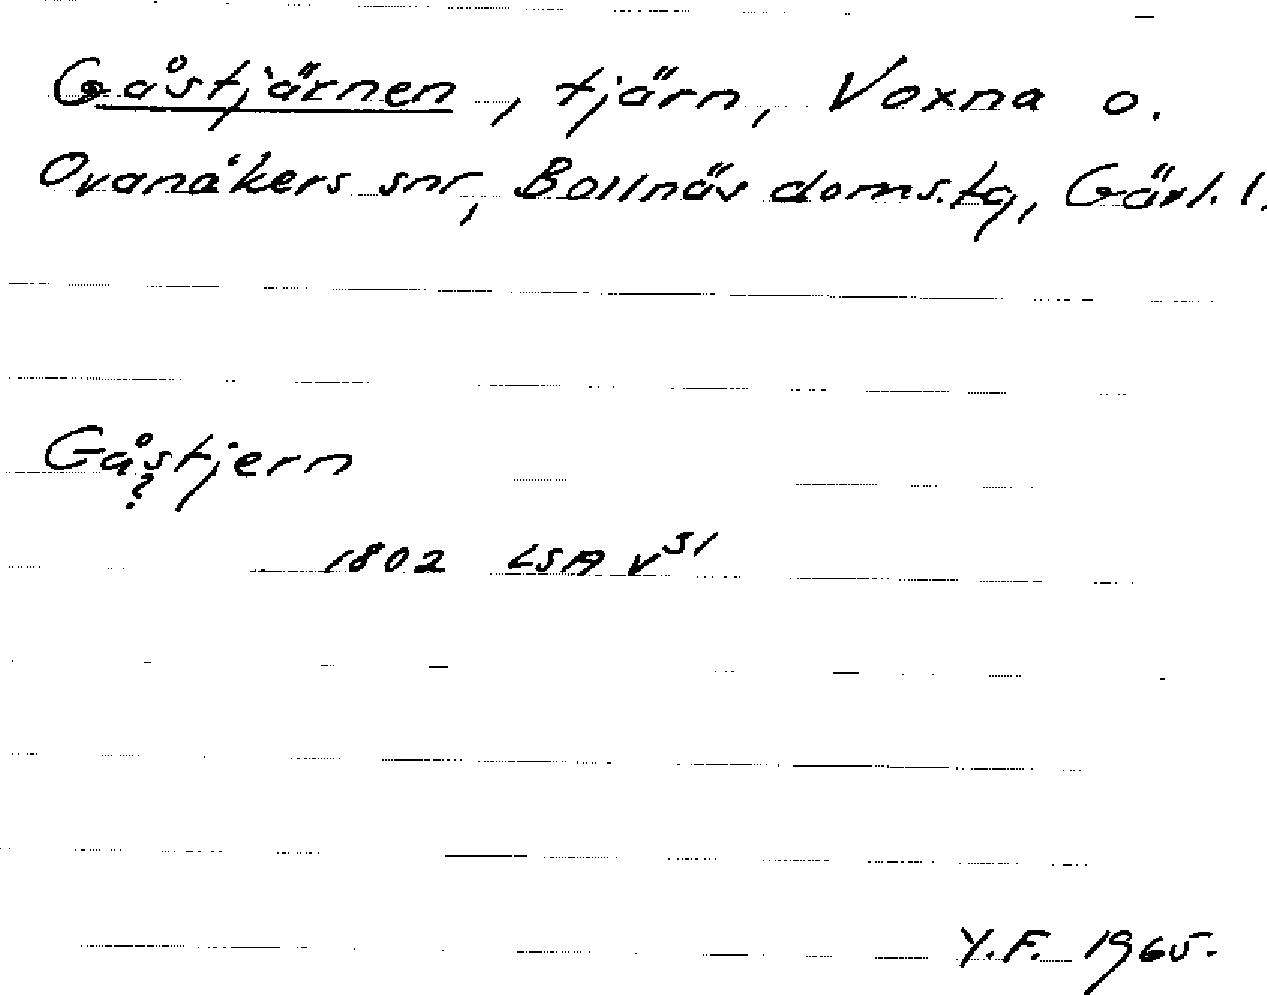 Gåstjärnen, tjärn, Voxna o.
Ovanåkers snr, Bollnäs doms.tg, Gävl. l.
Gåstjern
?
1802 LSA V51
Y.F. 1965.